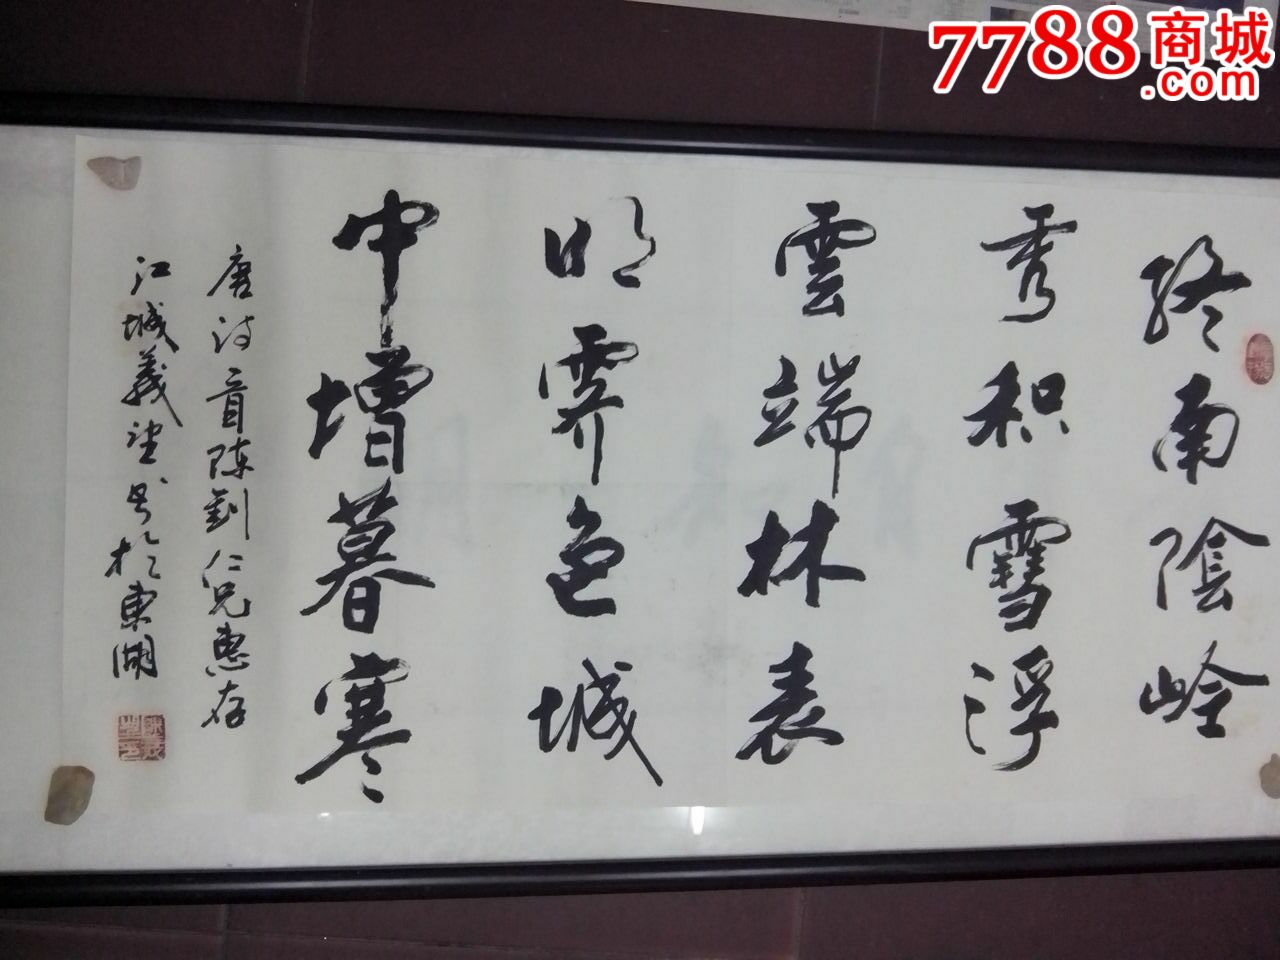 7788商城
.com
终南陰岭
秀积雪浮
雲端林表
明霁色城
中增暮寒
唐诗一首陈仁兄惠存
江城義望书於東湖